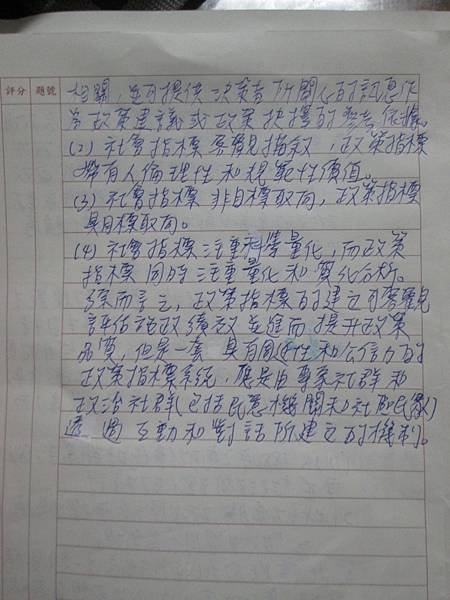 評分 題號
相關，並可提供決策者所關心的訊息作
為政策建議或政策抉擇的參考依據。
(2) 社會指標客觀指敘，政策指標
帶有人倫理性和規範性價值。
(3) 社會指標非目標取向，政策指標
具目標取向。
(4) 社會指標注重科學量化，而政策
指標同時注重量化和質化分析。
綜而言之，政策指標的建立可客觀
評估施政績效並進而提升政策
品質，但是一套具有固性和公信力的
政策指標系統，應是由專家社群和
政治社群(包括民意機關和社區民眾)
透過互動和對話所建立的機制。